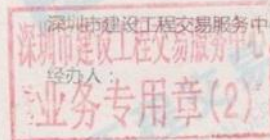 深圳市建设工程交易服务中
深圳市建设工程交易服务中心
经办人:
业务专用章(2)